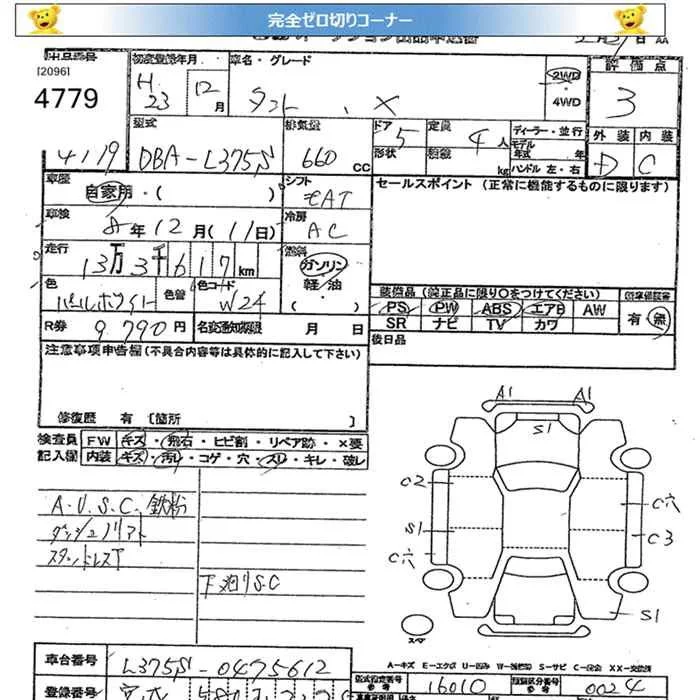 完全ゼロ切りコーナー
出品番号
[2096]
4779
4119
初度登録年月
H 23 12月
車名・グレード
タント . X
2WD
・
4WD
評価点
3
外装 内装
D C
型式
DBA-L375S
排気量
660 CC
ドア 5
形状
定員 4人
積載 kg
ディーラー・並行
モデル
年式 年
ハンドル 左・右
車歴
自家用・( )
シフト
CAT
車検
8年12月(11日)
冷房
AC
走行
13万3千617km
燃料
ガソリン
・
軽・油
( )
色
パールホワイト
色替
色コード
W24
R券 9,790円
名変通知期限 月 日
セールスポイント (正常に機能するものに限ります)
装備品 (純正品に限り○をつけてください)
PS PW ABS エアB AW
SR ナビ TV カワ
有・無
後日品
注意事項申告欄(不具合内容等は具体的に記入して下さい)
修復歴 有 [箇所 ]
検査員 FW キズ・飛石・ヒビ割・リペア跡・×要
記入欄 内装 キズ・汚レ・コゲ・穴・スレ・キレ・破レ
A.U.S.C.鉄粉
スタッドレスT
下廻りS.C
A1 A1
S1
C2
C穴
S1
C3
C穴
S1
スペア
A-キズ E-エクボ U-凹み W-補修跡 S-サビ C-腐食 XX-交換済
車台番号 L375S-0475612
型式指定番号
参考
16010
類別区分番号
参考
0024
登録番号